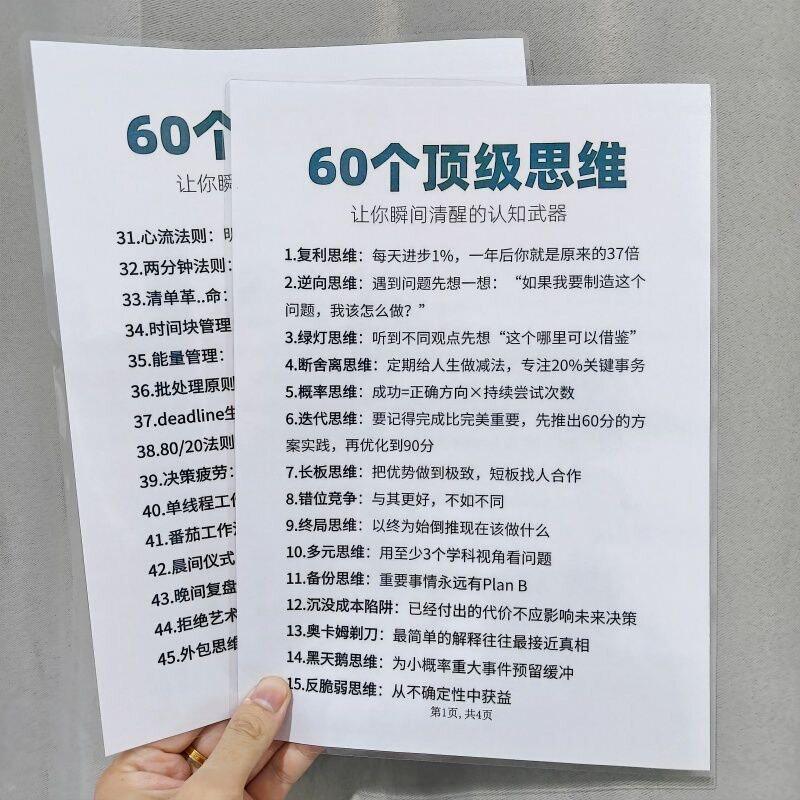 60个
让你瞬
31.心流法则：明
32.两分钟法则：
33.清单革..命：
34.时间块管理
35.能量管理：
36.批处理原则
37.deadline生
38.80/20法则
39.决策疲劳：
40.单线程工作
41.番茄工作法
42.晨间仪式
43.晚间复盘
44.拒绝艺术
45.外包思维
60个顶级思维
让你瞬间清醒的认知武器
1.复利思维：每天进步1%，一年后你就是原来的37倍
2.逆向思维：遇到问题先想一想：“如果我要制造这个
问题，我该怎么做？”
3.绿灯思维：听到不同观点先想“这个哪里可以借鉴”
4.断舍离思维：定期给人生做减法，专注20%关键事务
5.概率思维：成功=正确方向×持续尝试次数
6.迭代思维：要记得完成比完美重要，先推出60分的方
案实践，再优化到90分
7.长板思维：把优势做到极致，短板找人合作
8.错位竞争：与其更好，不如不同
9.终局思维：以终为始倒推现在该做什么
10.多元思维：用至少3个学科视角看问题
11.备份思维：重要事情永远有Plan B
12.沉没成本陷阱：已经付出的代价不应影响未来决策
13.奥卡姆剃刀：最简单的解释往往最接近真相
14.黑天鹅思维：为小概率重大事件预留缓冲
15.反脆弱思维：从不确定性中获益
第1页, 共4页